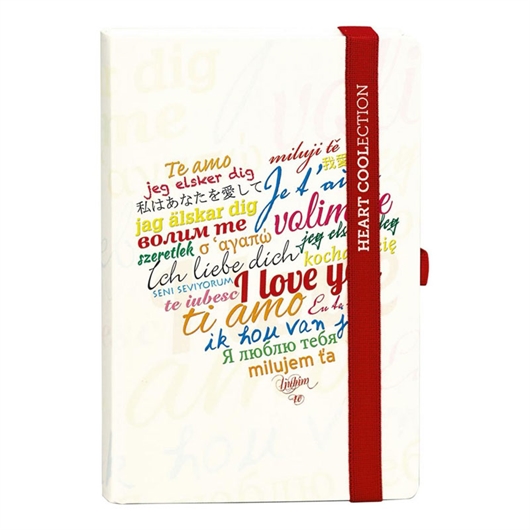 Te amo
miluji tě
jeg elsker dig
我愛
私はあなたを愛して
Je t'ai
jag älskar dig
volim te
волим те
jeg els
szeretlek
σ 'αγαπώ
kocha cię
Ich liebe dich
SENI SEVIYORUM
I love yo
te iubesc
Eu ta
ti amo
ik hou van j
Я люблю тебя
milujem ťa
ljubim
te
HEART COOLECTION